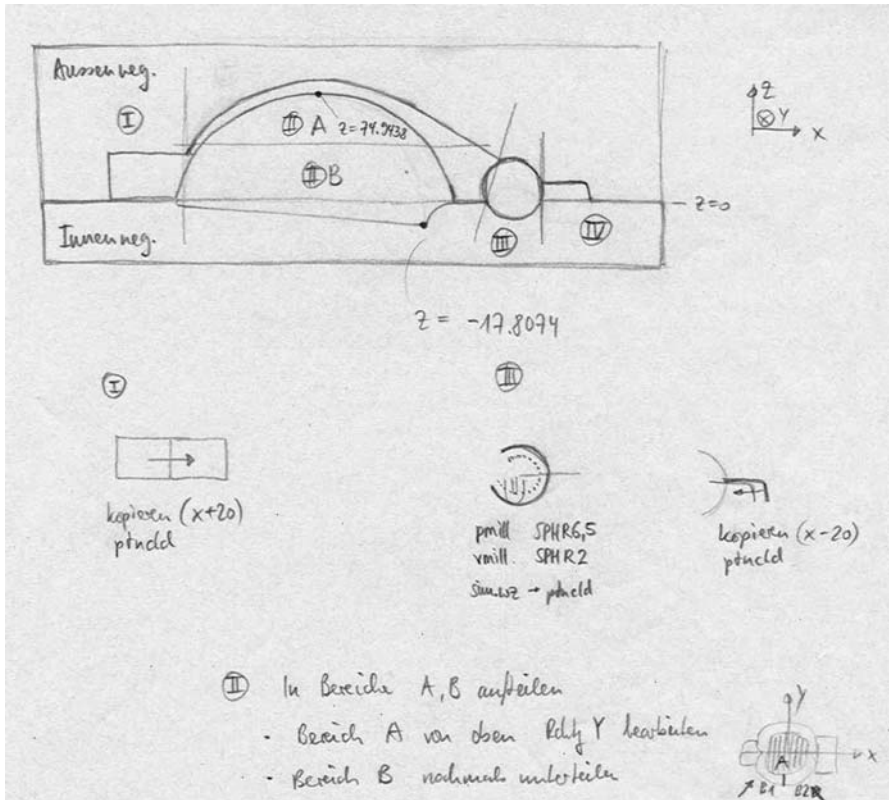 Aussenneg.
I
II A z=74.9438
II B
Z
Y
X
z=0
Innenneg.
III
IV
z = -17.8074
I
III
kopieren (x+20)
ptncld
pmill SPHR6,5
vmill. SPHR2
sim.wz → ptncld
kopieren (x-20)
ptncld
II In Bereiche A, B aufteilen
- Bereich A von oben Rchtg Y bearbeiten
- Bereich B nochmals unterteilen
Y
X
A
B1 B2